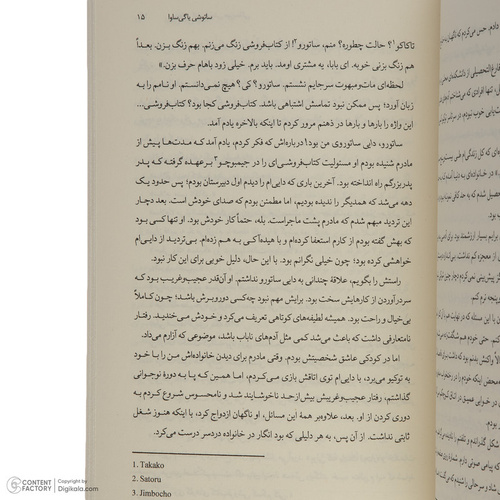 ساتوشی یاگی‌ساوا ۱۵
تاکاکو۱؟ حالت چطوره؟ منم، ساتورو۲! از کتاب‌فروشی زنگ می‌زنم. بهم زنگ بزن. بعداً
هم زنگ بزنی خوبه. ای بابا، یه مشتری اومد. باید برم. خیلی زود باهام حرف بزن.»
لحظه‌ای مات‌ومبهوت سرجایم نشستم. ساتورو؟ کی؟ هیچ نمی‌دانستم. او نامم را به
زبان آورد؛ پس ممکن نبود تماسش اشتباهی باشد. کتاب‌فروشی کجا بود؟ کتاب‌فروشی...
این واژه را بارها و بارها در ذهنم مرور کردم تا اینکه بالاخره یادم آمد.
ساتورو، دایی ساتوروی من بود! درباره‌اش که فکر کردم، یادم آمد که مدت‌ها پیش از
مادرم شنیده بودم او مسئولیت کتاب‌فروشی‌ای را در جیمبوچو۳ برعهده گرفته که پدر
پدربزرگم راه انداخته بود. آخرین باری که دایی‌ام را دیدم اول دبیرستان بودم؛ پس حدود یک
دهه می‌شد که همدیگر را ندیده بودیم، اما مطمئن بودم که صدای خودش است. بعد دچار
این تردید مبهم شدم که مادرم پشت ماجراست. بله، حتماً کار خودش بود. او تنها کسی بود
که بهش گفته بودم از کارم استعفا کرده‌ام و با هیده‌آکی به هم زده‌ام. بی‌تردید از دایی‌ام
خواهشی کرده بود؛ چون خیلی نگرانم بود. با این حال، دلیل خوبی برای این کار نبود.
راستش را بگویم، علاقهٔ چندانی به دایی ساتورو نداشتم. او آن‌قدر عجیب‌وغریب بود که
سردرآوردن از کارهایش سخت بود. برایش مهم نبود چه‌کسی دوروبرش باشد؛ چون کاملاً
بی‌خیال و راحت بود. همیشه لطیفه‌های کوتاهی تعریف می‌کرد و خودش می‌خندید. رفتار
نامتعارفی داشت که باعث می‌شد کمی مثل آدم‌های ناباب باشد، موضوعی که آزارم می‌داد.
اما در کودکی عاشق شخصیتش بودم. وقتی مادرم برای دیدن خانواده‌اش من را با خود
به توکیو می‌برد، با دایی‌ام توی اتاقش بازی می‌کردم، اما همین که پا به دورهٔ نوجوانی
گذاشتم، رفتار عجیب‌وغریبش بیش‌ازحد ناخوشایند شد و نامحسوس شروع کردم به
دوری کردن از او. بعد، علاوه‌بر همهٔ این مسائل، او ناگهان ازدواج کرد، با اینکه هنوز شغل
ثابتی نداشت. از آن پس، به هر دلیلی که بود انگار در خانواده دردسر درست می‌کرد.
1. Takako
2. Satoru
3. Jimbocho
CONTENT FACTORY
©Copyright by Digikala.com